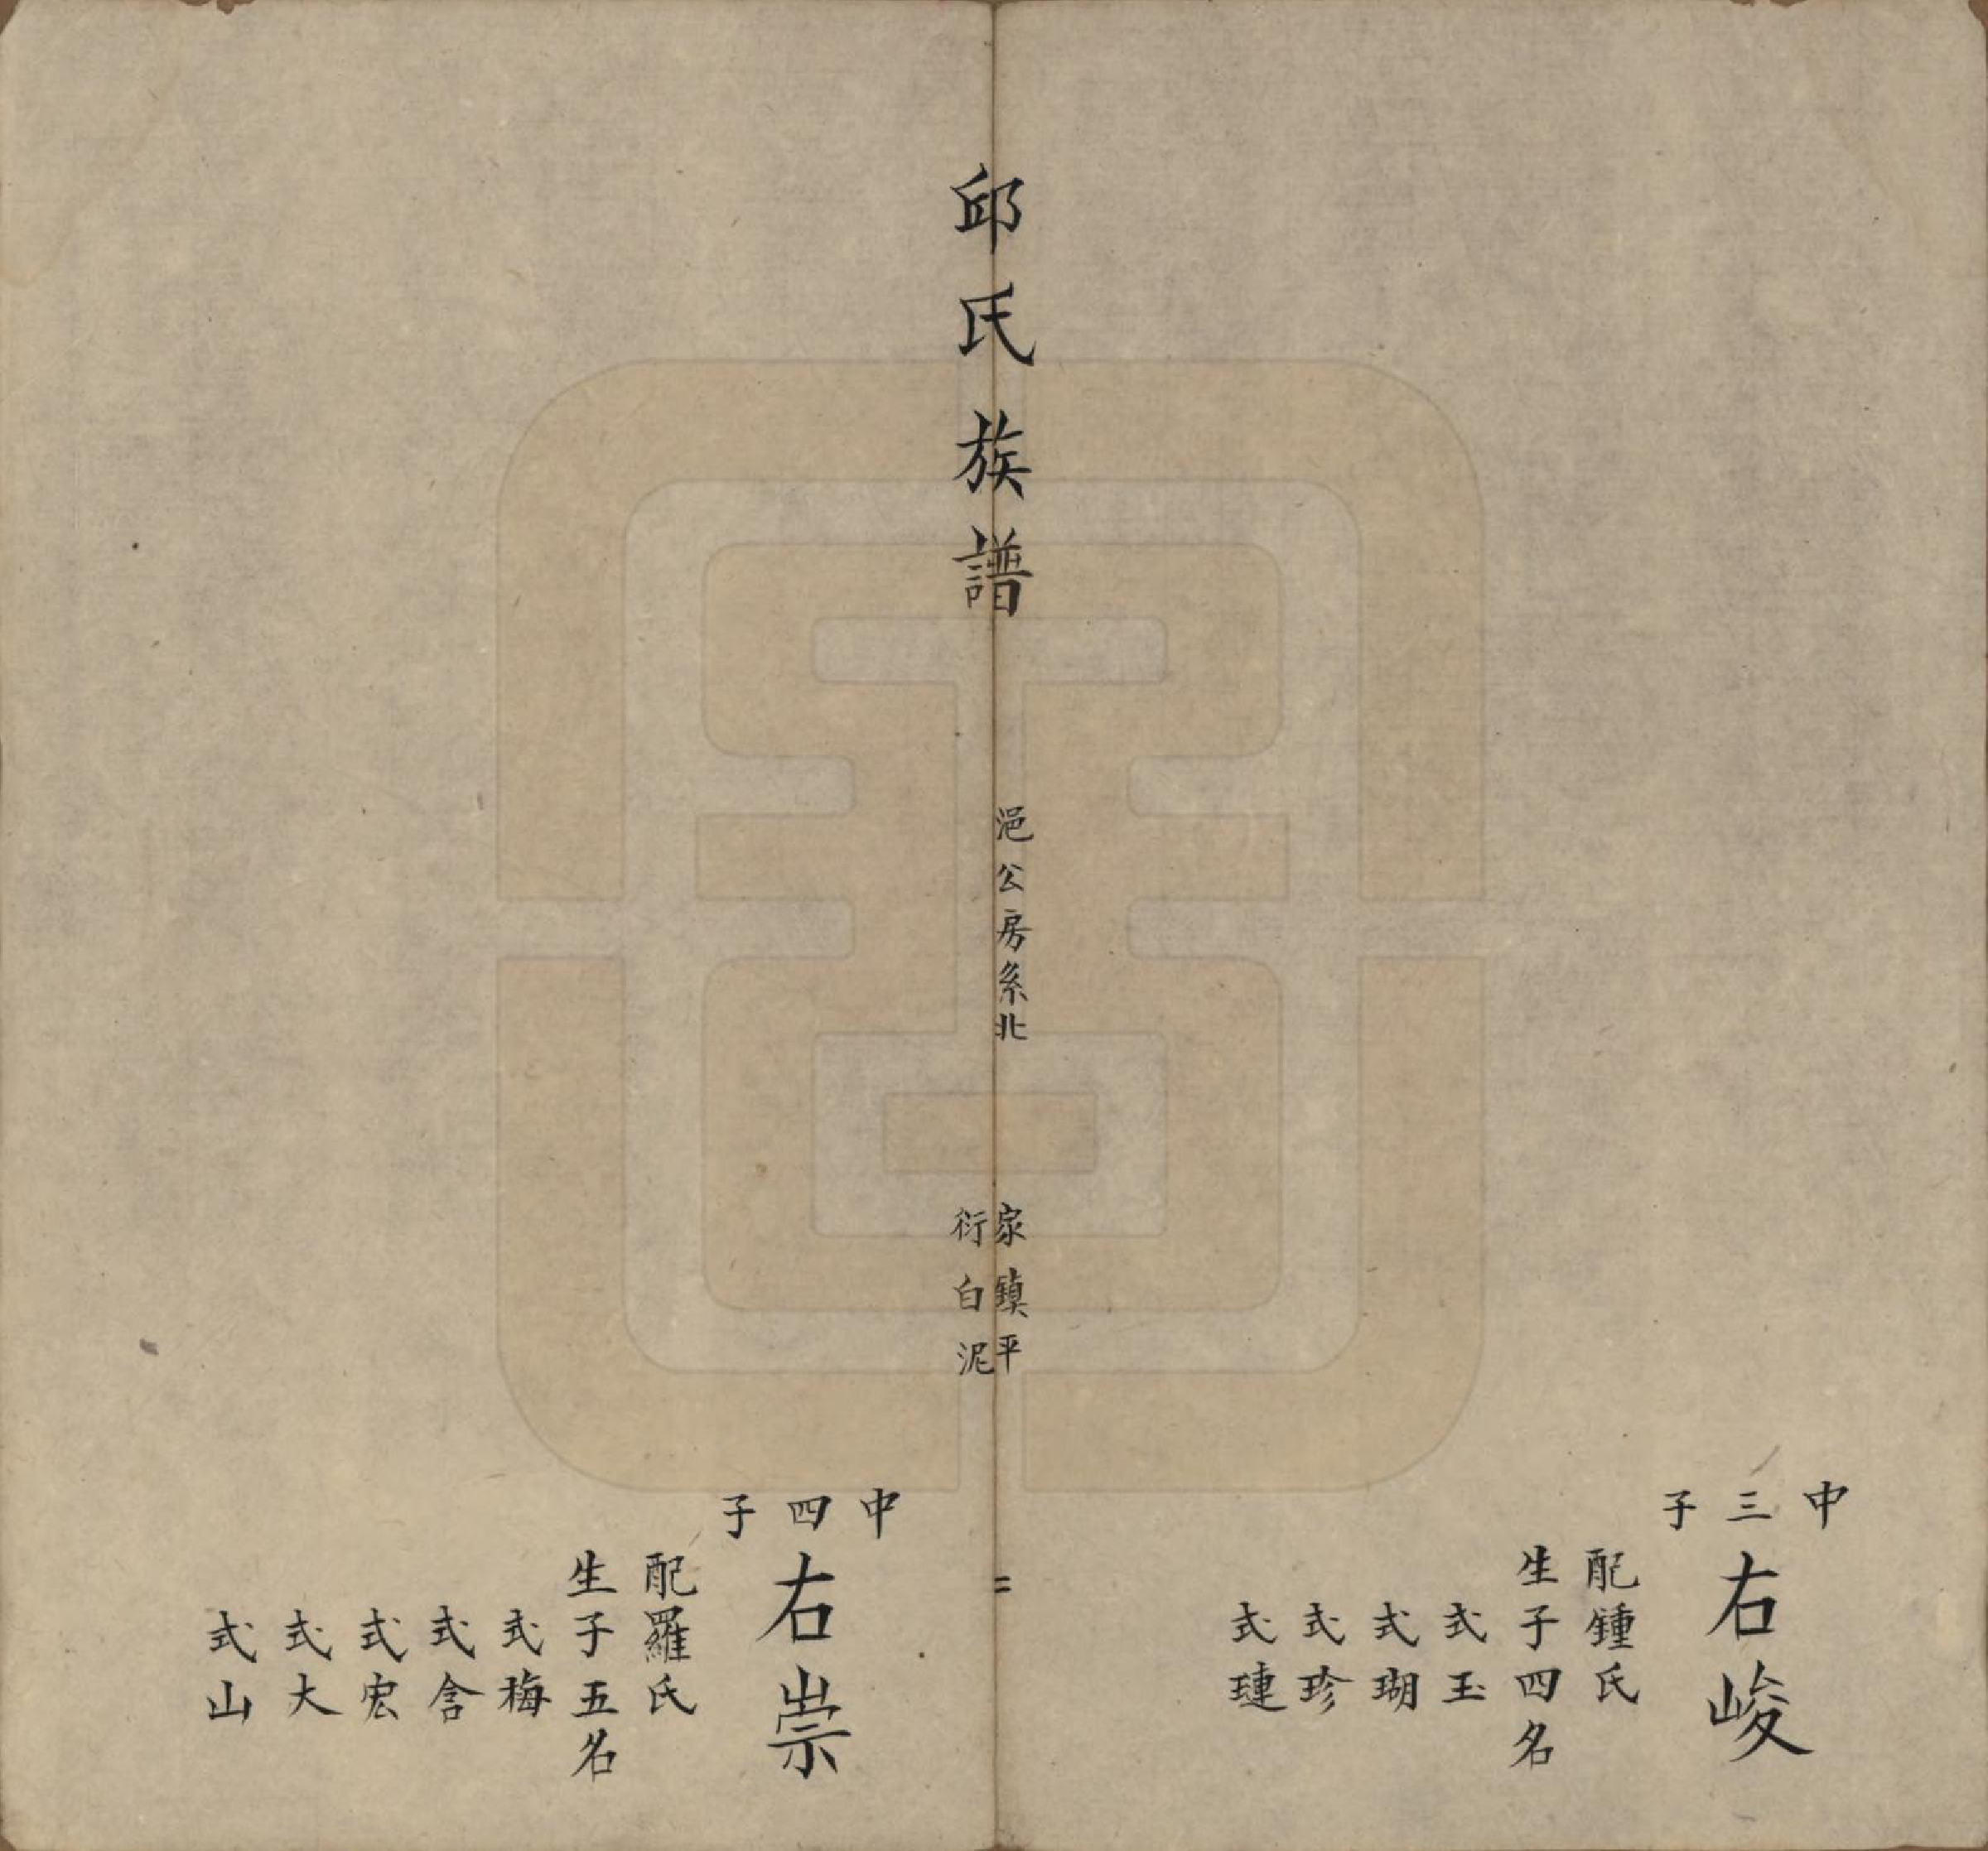 中三子
右峻
配鍾氏
生子四名
式玉
式瑚
式珍
式璉
邱氏族譜
浥公房系北
家鎮平
衍白泥
二
中四子
右崇
配羅氏
生子五名
式梅
式含
式宏
式大
式山